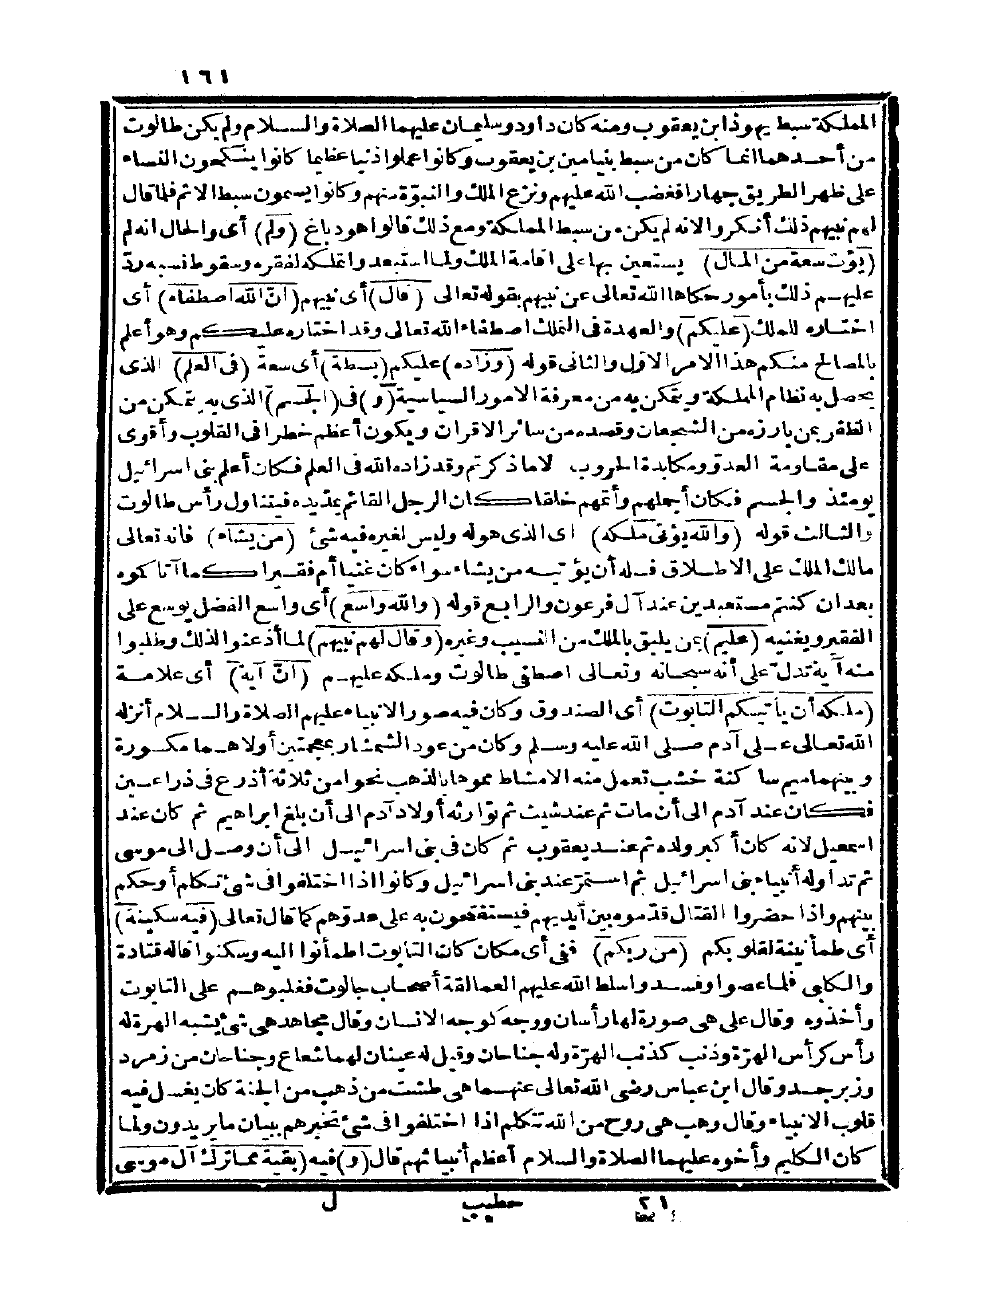 ١٦١
المملكة سبط يهوذا ابن يعقوب ومنه كان داود وسليمان عليهما الصلاة والسلام ولم يكن طالوت
من أحدهما انما كان من سبط بنيامين بن يعقوب وكانوا عملوا ذنبا عظيما كانوا ينكحون النساء
على ظهر الطريق جهارا فغضب الله عليهم ونزع الملك والنبوّة منهم وكانوا يسمون سبط الاثم فلما قال
لهم نبيهم ذلك أنكروا لانه لم يكن من سبط المملكة ومع ذلك قالوا هو دباغ (ولم) أى والحال انه لم
(يؤت سعة من المال) يستعين بها على اقامة الملك ولما استبعدوا تملكه لفقره وسقوط نسبه ردّ
عليهم ذلك بأمور حكاها الله تعالى عن نبيهم بقوله تعالى (قال) أى نبيهم (انّ الله اصطفاه) أى
اختاره للملك (عليكم) والعهدة فى التملك اصطفاء الله تعالى وقد اختاره عليكم وهو أعلم
بالمصالح منكم هذا الامر الاول والثانى قوله (وزاده) عليكم (بسطة) أى سعة (فى العلم) الذى
يحصل به نظام المملكة ويتمكن به من معرفة الامور السياسية (و) فى (الجسم) الذى به يتمكن من
الظفر بمن بارزه من الشجعان وقصده من سائر الاقران ويكون أعظم خطرا فى القلوب وأقوى
على مقاومة العدوّ ومكابدة الحروب لا ما ذكرتم وقد زاده الله فى العلم فكان أعلم بنى اسرائيل
يومئذ والجسم فكان أجملهم وأتمهم خلقا كان الرجل القائم يمدّ يده فيتناول رأس طالوت
والثالث قوله (والله يؤتى ملكه) اى الذى هو له وليس لغيره فيه شئ (من يشاء) فانه تعالى
مالك الملك على الاطلاق فله أن يؤتيه من يشاء سواء كان غنيا أم فقيرا كما آتاكموه
بعد ان كنتم مستعبدين عند آل فرعون والرابع قوله (والله واسع) أى واسع الفضل يوسع على
الفقير ويغنيه (عليم) بمن يليق بالملك من النسيب وغيره (وقال لهم نبيهم) لما أذعنوا لذلك وطلبوا
منه آية تدلّ على أنه سبحانه وتعالى اصطفى طالوت وملكه عليهم (انّ آية) أى علامة
(ملكه أن يأتيكم التابوت) أى الصندوق وكان فيه صور الانبياء عليهم الصلاة والسلام أنزله
الله تعالى على آدم صلى الله عليه وسلم وكان من عود الشمشار بمعجمتين أولاهما مكسورة
وبينهما ميم ساكنة خشب تعمل منه الامشاط مموها بالذهب نحوا من ثلاثة أذرع فى ذراعين
فكان عند آدم الى أن مات ثم عند شيث ثم توارثه أولاد آدم الى أن بلغ ابراهيم ثم كان عند
اسمعيل لانه كان أكبر ولده ثم عند يعقوب ثم كان فى بنى اسرائيل الى أن وصل الى موسى
ثم تداوله أنبياء بنى اسرائيل ثم استمرّ عند بنى اسرائيل وكانوا اذا اختلفوا فى شئ تكلم أو حكم
بينهم واذا حضروا القتال قدّموه بين أيديهم فيستفتحون به على عدوّهم كما قال تعالى (فيه سكينة)
أى طمأنينة لقلوبكم (من ربكم) ففى أى مكان كان التابوت اطمأنوا اليه وسكنوا قاله قتادة
والكلبى فلما عصوا وفسدوا سلط الله عليهم العمالقة أصحاب جالوت فغلبوهم على التابوت
وأخذوه وقال على هى صورة لها رأسان ووجه كوجه الانسان وقال مجاهد هى شئ يشبه الهرة له
رأس كرأس الهرّة وذنب كذنب الهرّة وله جناحان وقيل له عينان لهما شعاع وجناحان من زمرد
وزبرجد وقال ابن عباس رضى الله تعالى عنهما هى طشت من ذهب من الجنة كان يغسل فيه
قلوب الانبياء وقال وهب هى روح من الله تتكلم اذا اختلفوا فى شئ تخبرهم ببيان ما يريدون ولما
كان الكليم وأخوه عليهما الصلاة والسلام أعظم أنبيائهم قال (و) فيه (بقية مما ترك آل موسى
٢١ خطيب ل